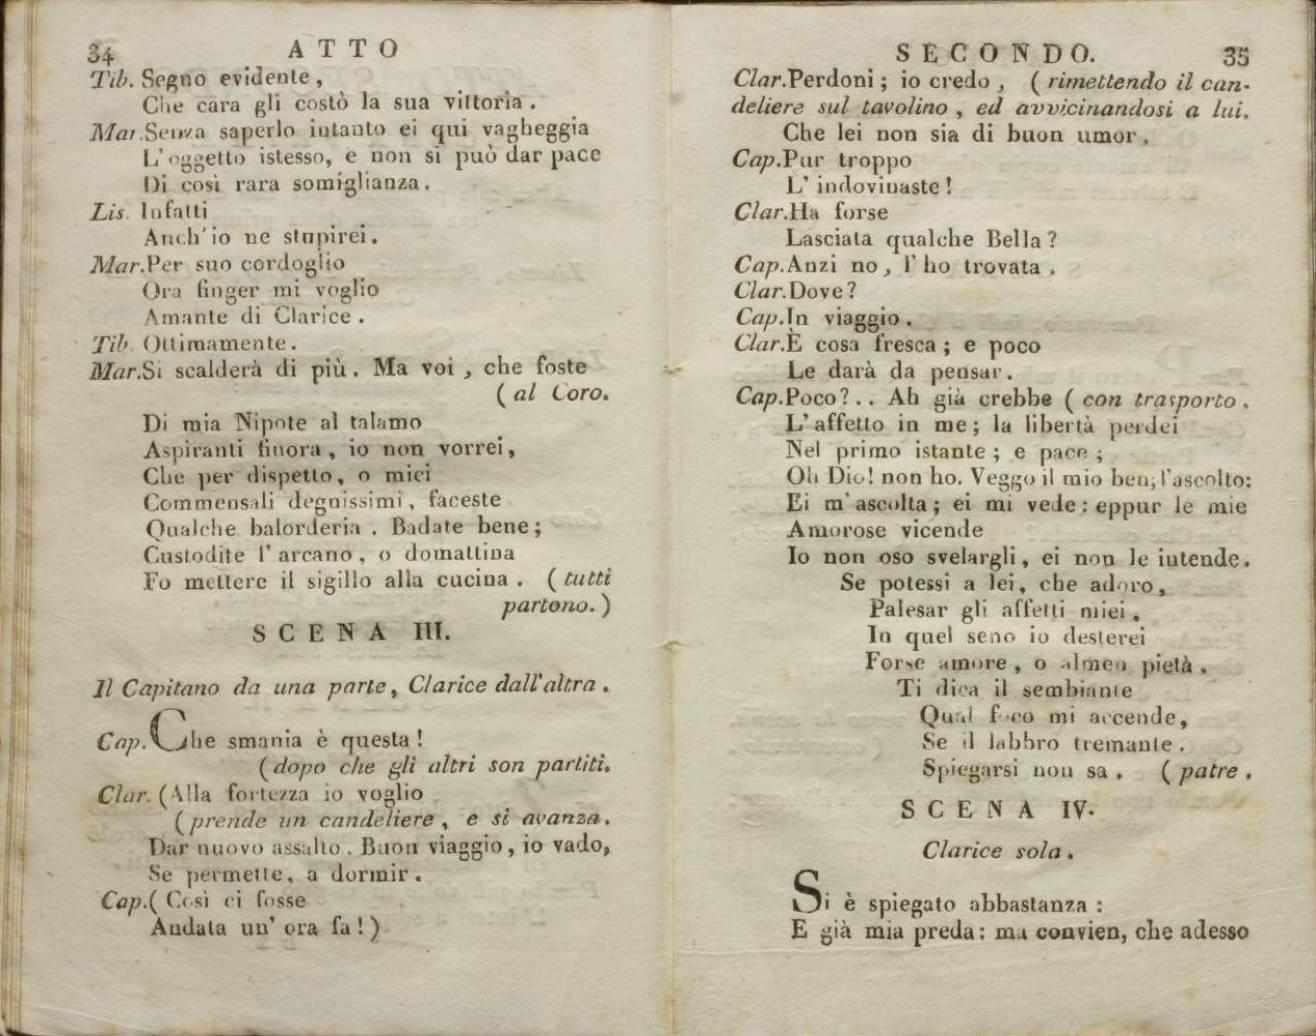 34
ATTO
Tib. Segno evidente,
Che cara gli costò la sua vittoria.
Mar. Senza saperlo intanto ei qui vagheggia
L'oggetto istesso, e non si può dar pace
Di così rara somiglianza.
Lis. Infatti
Anch'io ne stupirei.
Mar. Per suo cordoglio
Ora finger mi voglio
Amante di Clarice.
Tib. Ottimamente.
Mar. Si scalderà di più. Ma voi, che foste
(al Coro.
Di mia Nipote al talamo
Aspiranti finora, io non vorrei,
Che per dispetto, o miei
Commensali degnissimi, faceste
Qualche balorderia. Badate bene;
Custodite l'arcano, o domattina
Fo mettere il sigillo alla cucina. (tutti
partono.)
SCENA III.
Il Capitano da una parte, Clarice dall'altra.
Cap. Che smania è questa!
(dopo che gli altri son partiti.
Clar. (Alla fortezza io voglio
(prende un candeliere, e si avanza.
Dar nuovo assalto. Buon viaggio, io vado,
Se permette, a dormir.
Cap. (Così ci fosse
Andata un' ora fa!)
SECONDO.
35
Clar. Perdoni; io credo, (rimettendo il can-
deliere sul tavolino, ed avvicinandosi a lui.
Che lei non sia di buon umor.
Cap. Pur troppo
L'indovinaste!
Clar. Ha forse
Lasciata qualche Bella?
Cap. Anzi no, l'ho trovata.
Clar. Dove?
Cap. In viaggio.
Clar. È cosa fresca; e poco
Le darà da pensar.
Cap. Poco?.. Ah già crebbe (con trasporto.
L'affetto in me; la libertà perdei
Nel primo istante; e pace;
Oh Dio! non ho. Veggo il mio ben; l'ascolto:
Ei m'ascolta; ei mi vede: eppur le mie
Amorose vicende
Io non oso svelargli, ei non le intende.
Se potessi a lei, che adoro,
Palesar gli affetti miei,
In quel seno io desterei
Forse amore, o almen pietà.
Ti dica il sembiante
Qual foco mi accende,
Se il labbro tremante.
Spiegarsi non sa. (patre.
SCENA IV.
Clarice sola.
Si è spiegato abbastanza:
E già mia preda: ma convien, che adesso